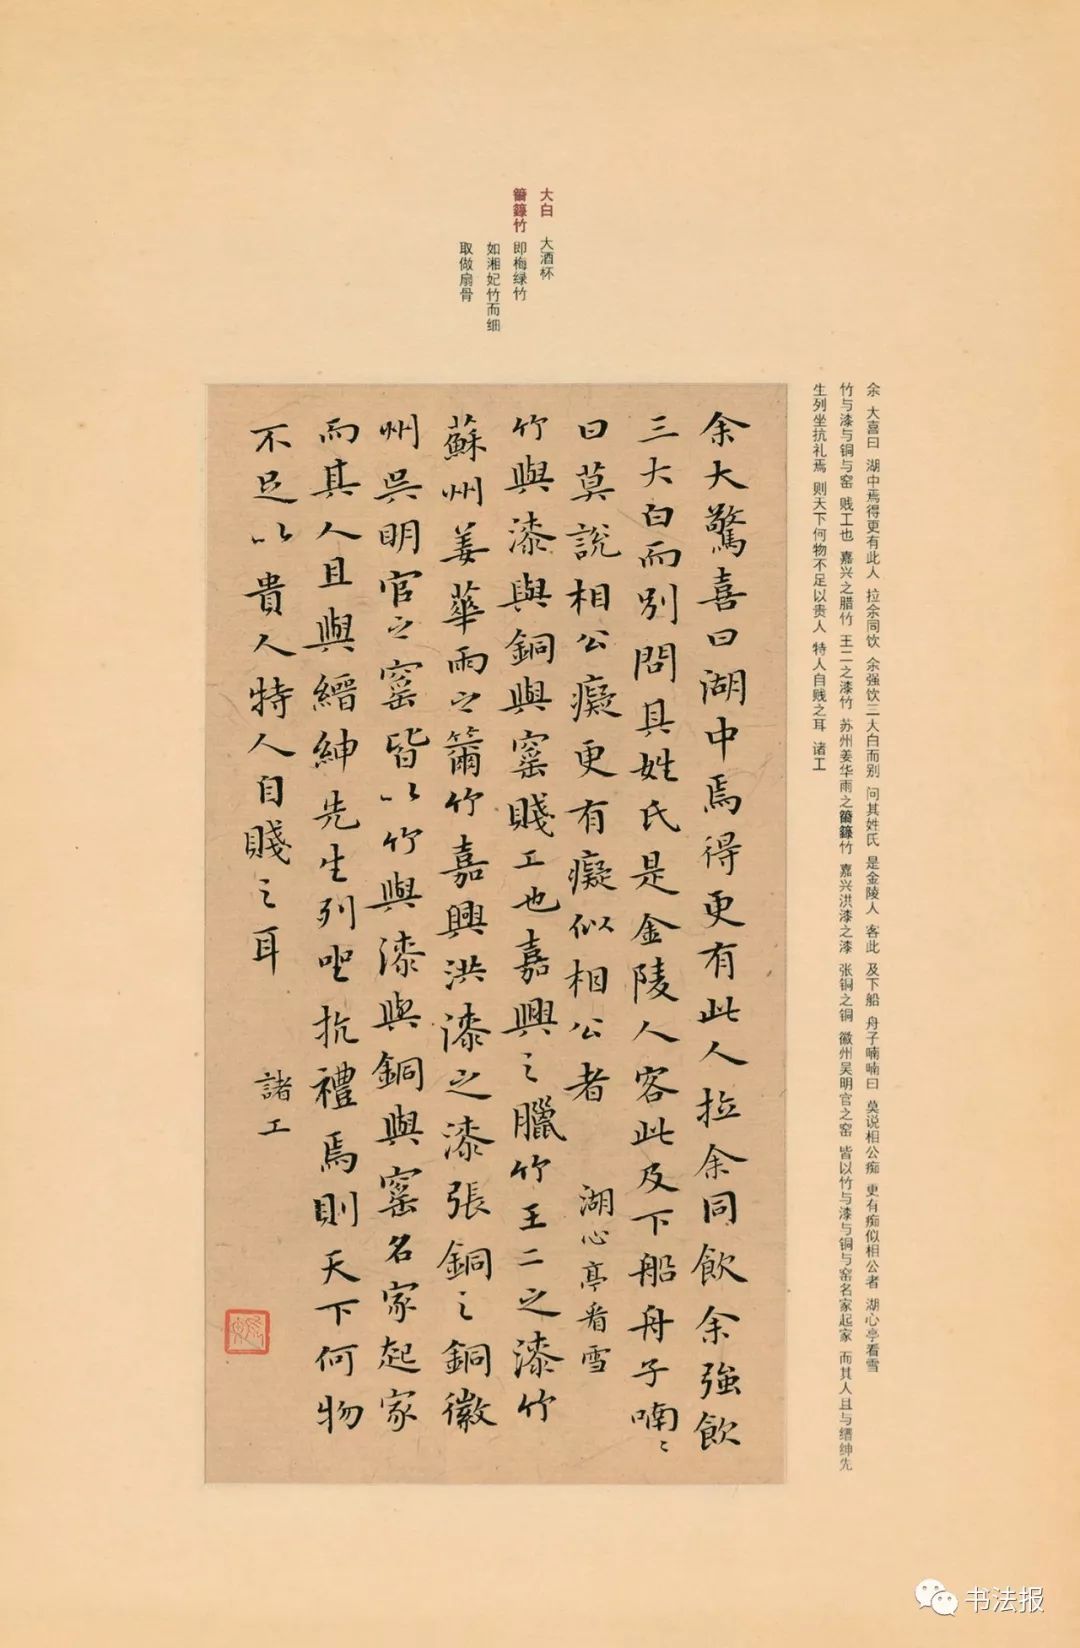 大白 大酒杯
竹 即梅绿竹
如湘妃竹而细
取做扇骨
余 大喜曰 湖中焉得更有此人 拉余同饮 余强饮三大白而别 问其姓氏 是金陵人 客此 及下船 舟子喃喃曰 莫说相公痴 更有痴似相公者 湖心亭看雪
竹与漆与铜与窑 贱工也 嘉兴之腊竹 王二之漆竹 苏州姜华雨之竹 嘉兴洪漆之漆 张铜之铜 徽州吴明官之窑 皆以竹与漆与铜与窑名家起家 而其人且与缙绅先
生列坐抗礼焉 则天下何物不足以贵人 特人自贱之耳 诸工
余大驚喜曰湖中焉得更有此人拉余同飲余強飲
三大白而別問其姓氏是金陵人客此及下船舟子喃〻
曰莫說相公癡更有癡似相公者 湖心亭看雪
竹與漆與銅與窰賤工也嘉興之臘竹王二之漆竹
蘇州姜華雨之竹嘉興洪漆之漆張銅之銅徽
州吳明官之窰皆以竹與漆與銅與窰名家起家
而其人且與縉紳先生列坐抗禮焉則天下何物
不足以貴人特人自賤之耳 諸工
书法报